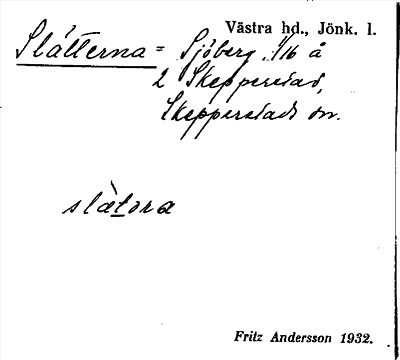 Västra hd., Jönk. l.
Slätterna = Sjöberg, 1/16 å
2 Skepperstad,
Skepperstads sn.
slætɔra
Fritz Andersson 1932.